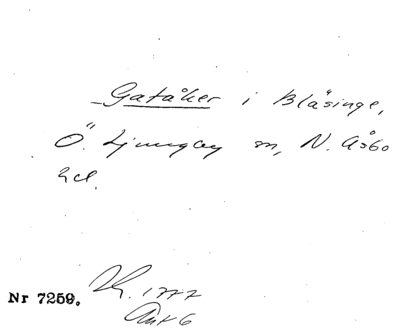 Gatåker i Blåsinge,
Ö. Ljungby sn, N. Åsbo
hd.
Nr 7259. 1777
Akt 6